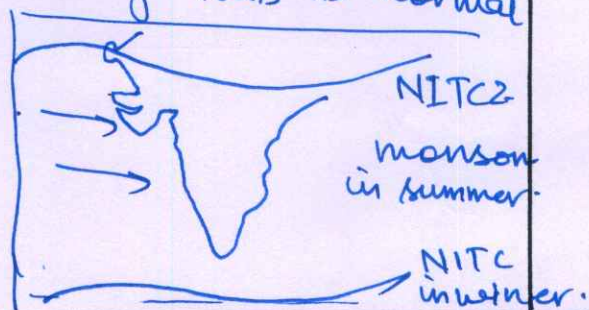 normal
NITCZ
monson
in summer.
NITC
in winter.